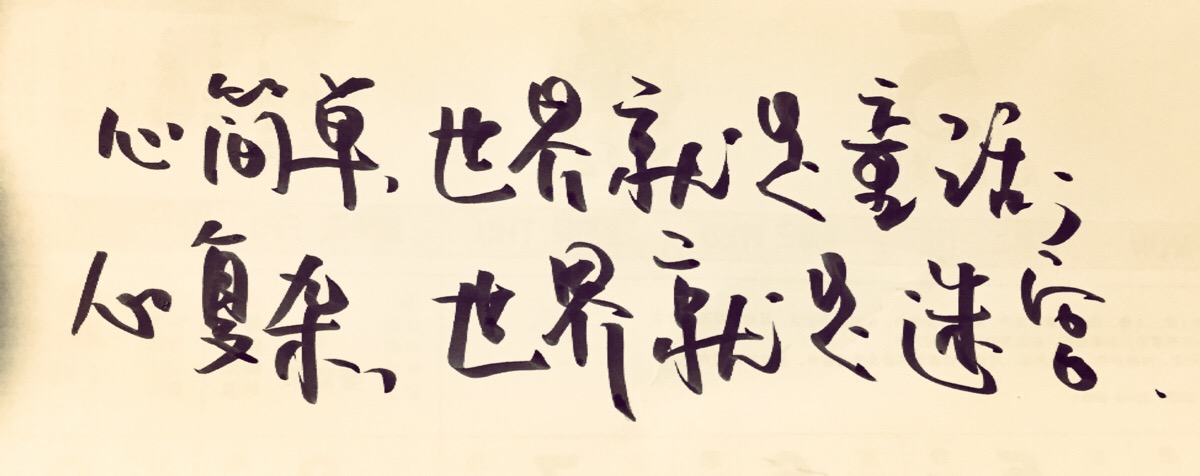 心简单、世界就是童话；
心复杂、世界就是迷宫.